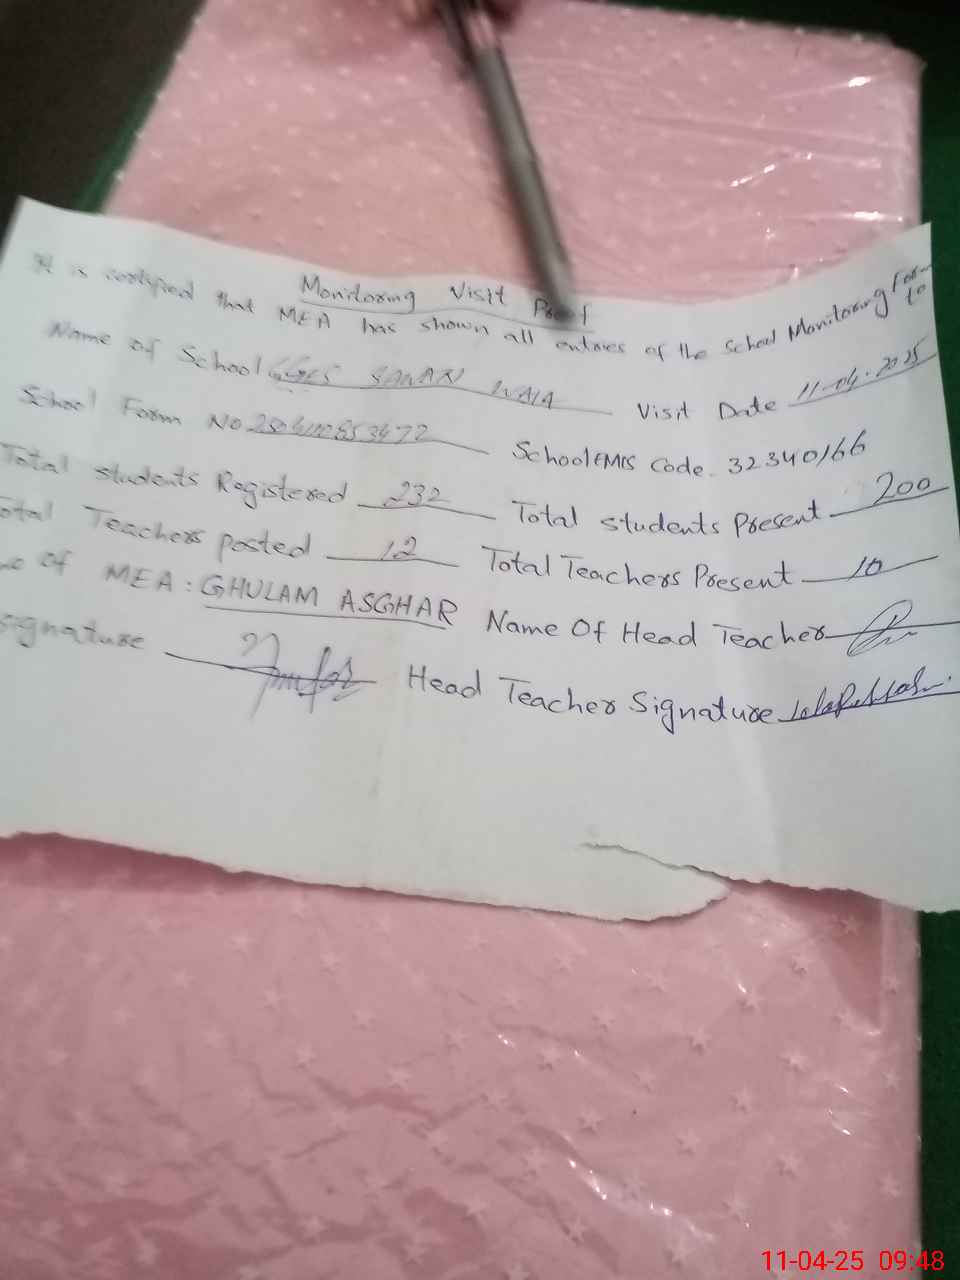 Monitoring Visit Proof
It is certified that MEA has shown all entries of the School Monitoring Form to
Name of School GGES SAWARI WALA Visit Date 11-04-2025
School Form No SchoolEMIS Code. 32340166
Total students Registered 232 Total students Present 200
otal Teachers posted 12 Total Teachers Present 10
me of MEA: GHULAM ASGHAR Name Of Head Teacher
signature Head Teacher Signature
11-04-25 09:48